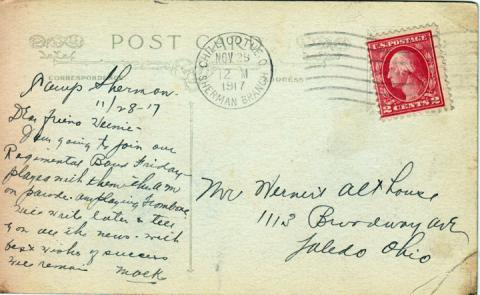 POST C
CORRESPONDENCE
DRESS
CHILLICOTHE, O.
NOV 29
12 M
1917
SHERMAN BRANCH
U.S. POSTAGE
2 CENTS 2
Camp Sherman-
11/28-17
Dear Friend Wernie-
I am going to join our
Regimental Band Friday-
played with them this A M
on parade. am playing Trombone
will write later & tell
you all the news - with
best wishes of success
will remain Mack
Mr Werner Althouse
1113 Broadway Ave
Toledo Ohio